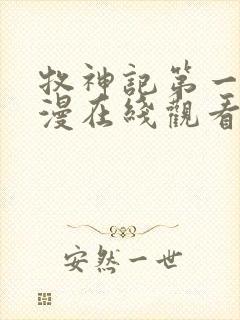 牧神記第一
漫在綫觀看
安然一世